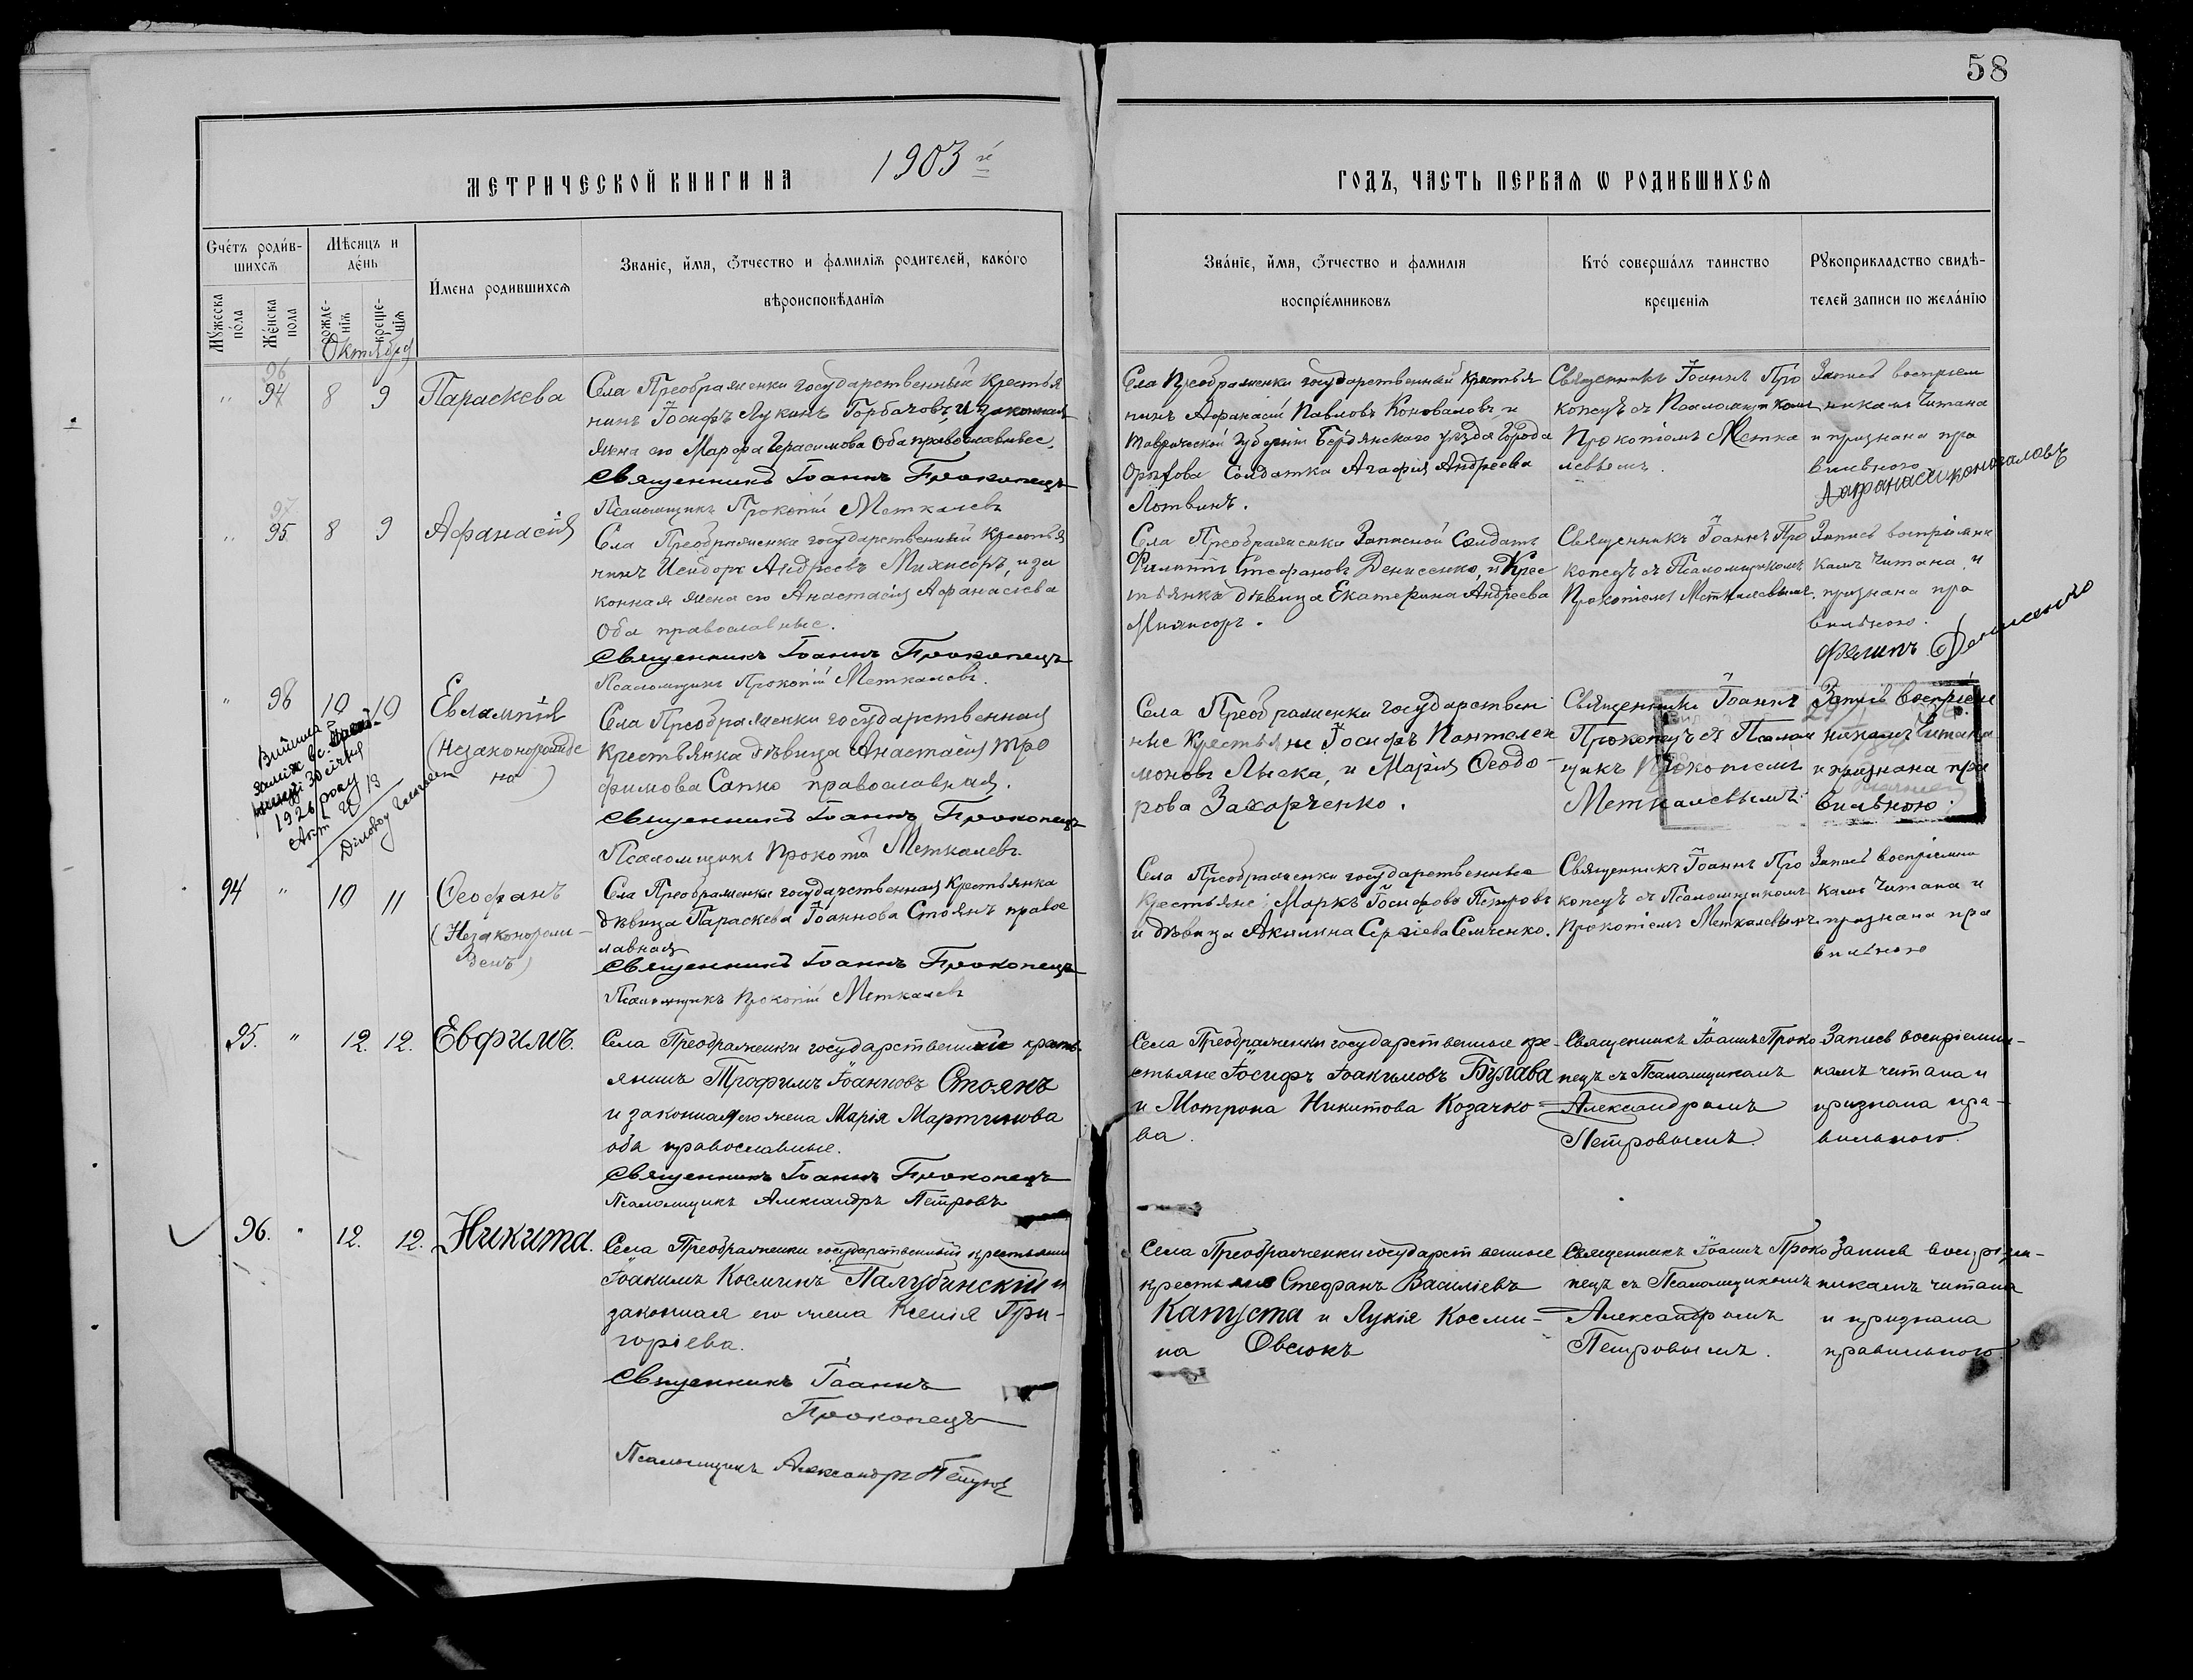 58
МЕТРИЧЕСКОЙ КНИГИ НА 1903 й
ГОДЪ, ЧАСТЬ ПЕРВАЯ Ѡ РОДИВШИХСЯ
Счетъ родив-
шихся
Мѣсяцъ и
день
Имена родившихся
Званіе, имя, отчество и фамилія родителей, какого
вѣроисповѣданія
Мужеска
пола
Женска
пола
рожде-
нія
креще-
нія
Званіе, имя, отчество и фамилія
воспріемниковъ
Кто совершалъ таинство
крещенія
Рукоприкладство свидѣ-
телей записи по желанію
Октября
96
" 94 8 9 Параскева
Села Преображенки государственный Крестья
нинъ Іосифъ Лукинъ Горбачовъ, и законная
жена его Марфа Герасимова оба православные.
Священникъ Іоаннъ Прокопецъ
Псаломщикъ Прокопій Меткалевъ
Села Преображенки государственный крестья
нинъ Афанасій Павловъ Коноваловъ и
Таврической Губерніи Бердянскаго уѣзда Города
Орѣхова Солдатка Агафія Андреева
Литвинъ.
Священникъ Іоаннъ Про
копецъ съ Псаломщикомъ
Прокопіемъ Метка
левымъ.
Запись воспріем
никамъ читана
и признана пра
вильною
Афанасий коноваловъ
97
" 95 8 9 Афанасія
Села Преображенки государственный Крестья
нинъ Исидоръ Андреевъ , и за
конная жена его Анастасія Афанасіева
Оба православные.
Священникъ Іоаннъ Прокопецъ
Псаломщикъ Прокопій Меткалевъ.
Села Преображенки Запасной Солдатъ
Филиппъ Стефановъ Денисенко, и Крес
тьянка дѣвица Екатерина Андреева
Священникъ Іоаннъ Про
копецъ съ Псаломщикомъ
Прокопіемъ Меткалевымъ.
Запись воспріемни
камъ читана и
признана пра
вильною.
Филипъ Денисенко
" 98 10 10 Евлампія
(Незаконорожде
на)
Вийшла
заміж
30 січня
1926 року
Акт № 13
Села Преображенки государственная
крестьянка дѣвица Анастасія Тро
фимова Сапко православная.
Священникъ Іоаннъ Прокопецъ
Псаломщикъ Прокопій Меткалевъ.
Села Преображенки государствен
ные Крестьяне Іосифъ Пантелей
моновъ Лыска, и Марія Ѳеодо
рова Захарченко.
Священникъ Іоаннъ
Прокопецъ съ Псалом
щикъ Прокопіемъ
Меткалевымъ.
Запись воспріем
никамъ читана
и признана пра
вильною.
94 " 10 11 Ѳеофанъ
(Незаконорож-
денъ)
Села Преображенки государственная Крестьянка
дѣвица Параскева Іоаннова Стоянъ право
славная
Священникъ Іоаннъ Прокопецъ
Псаломщикъ Прокопій Меткалевъ
Села Преображенки государственные
Крестьяне: Маркъ Іосифовъ Петровъ
и дѣвица Акилина Сергіева Семченко.
Священникъ Іоаннъ Про
копецъ съ Псаломщикомъ
Прокопіемъ Меткалевымъ.
Запись воспріемни
камъ читана и
признана пра
вильною
95. " 12. 12. Евфимъ.
Села Преображенки государственный кресть-
янинъ Трофимъ Іоанновъ Стоянъ
и законная его жена Марія Мартинова
оба православные.
Священникъ Іоаннъ Прокопецъ
Псаломщикъ Александръ Петровъ
Села Преображенки государственные кре-
стьяне Іосифъ Іоакимовъ Булава
и Мотрона Никитова Козачко-
ва.
Священникъ Іоаннъ Проко
пецъ съ Псаломщикомъ
Александромъ
Петровымъ.
Запись воспріемни-
камъ читана и
признана пра-
вильною.
96. " 12. 12. Никита.
Села Преображенки государственный крестьянинъ
Іоакимъ Косминъ Палубинскій и
законная его жена Ксенія Гри-
горіева.
Священникъ Іоаннъ
Прокопецъ
Псаломщикъ Александръ Петровъ
Села Преображенки государственные
крестьяне Стефанъ Василіевъ
Капуста и Лукія Косми-
на Овсюкъ
Священникъ Іоаннъ Проко
пецъ съ Псаломщикомъ
Александромъ
Петровымъ.
Запись воспріем-
никамъ читана
и признана
правильною.